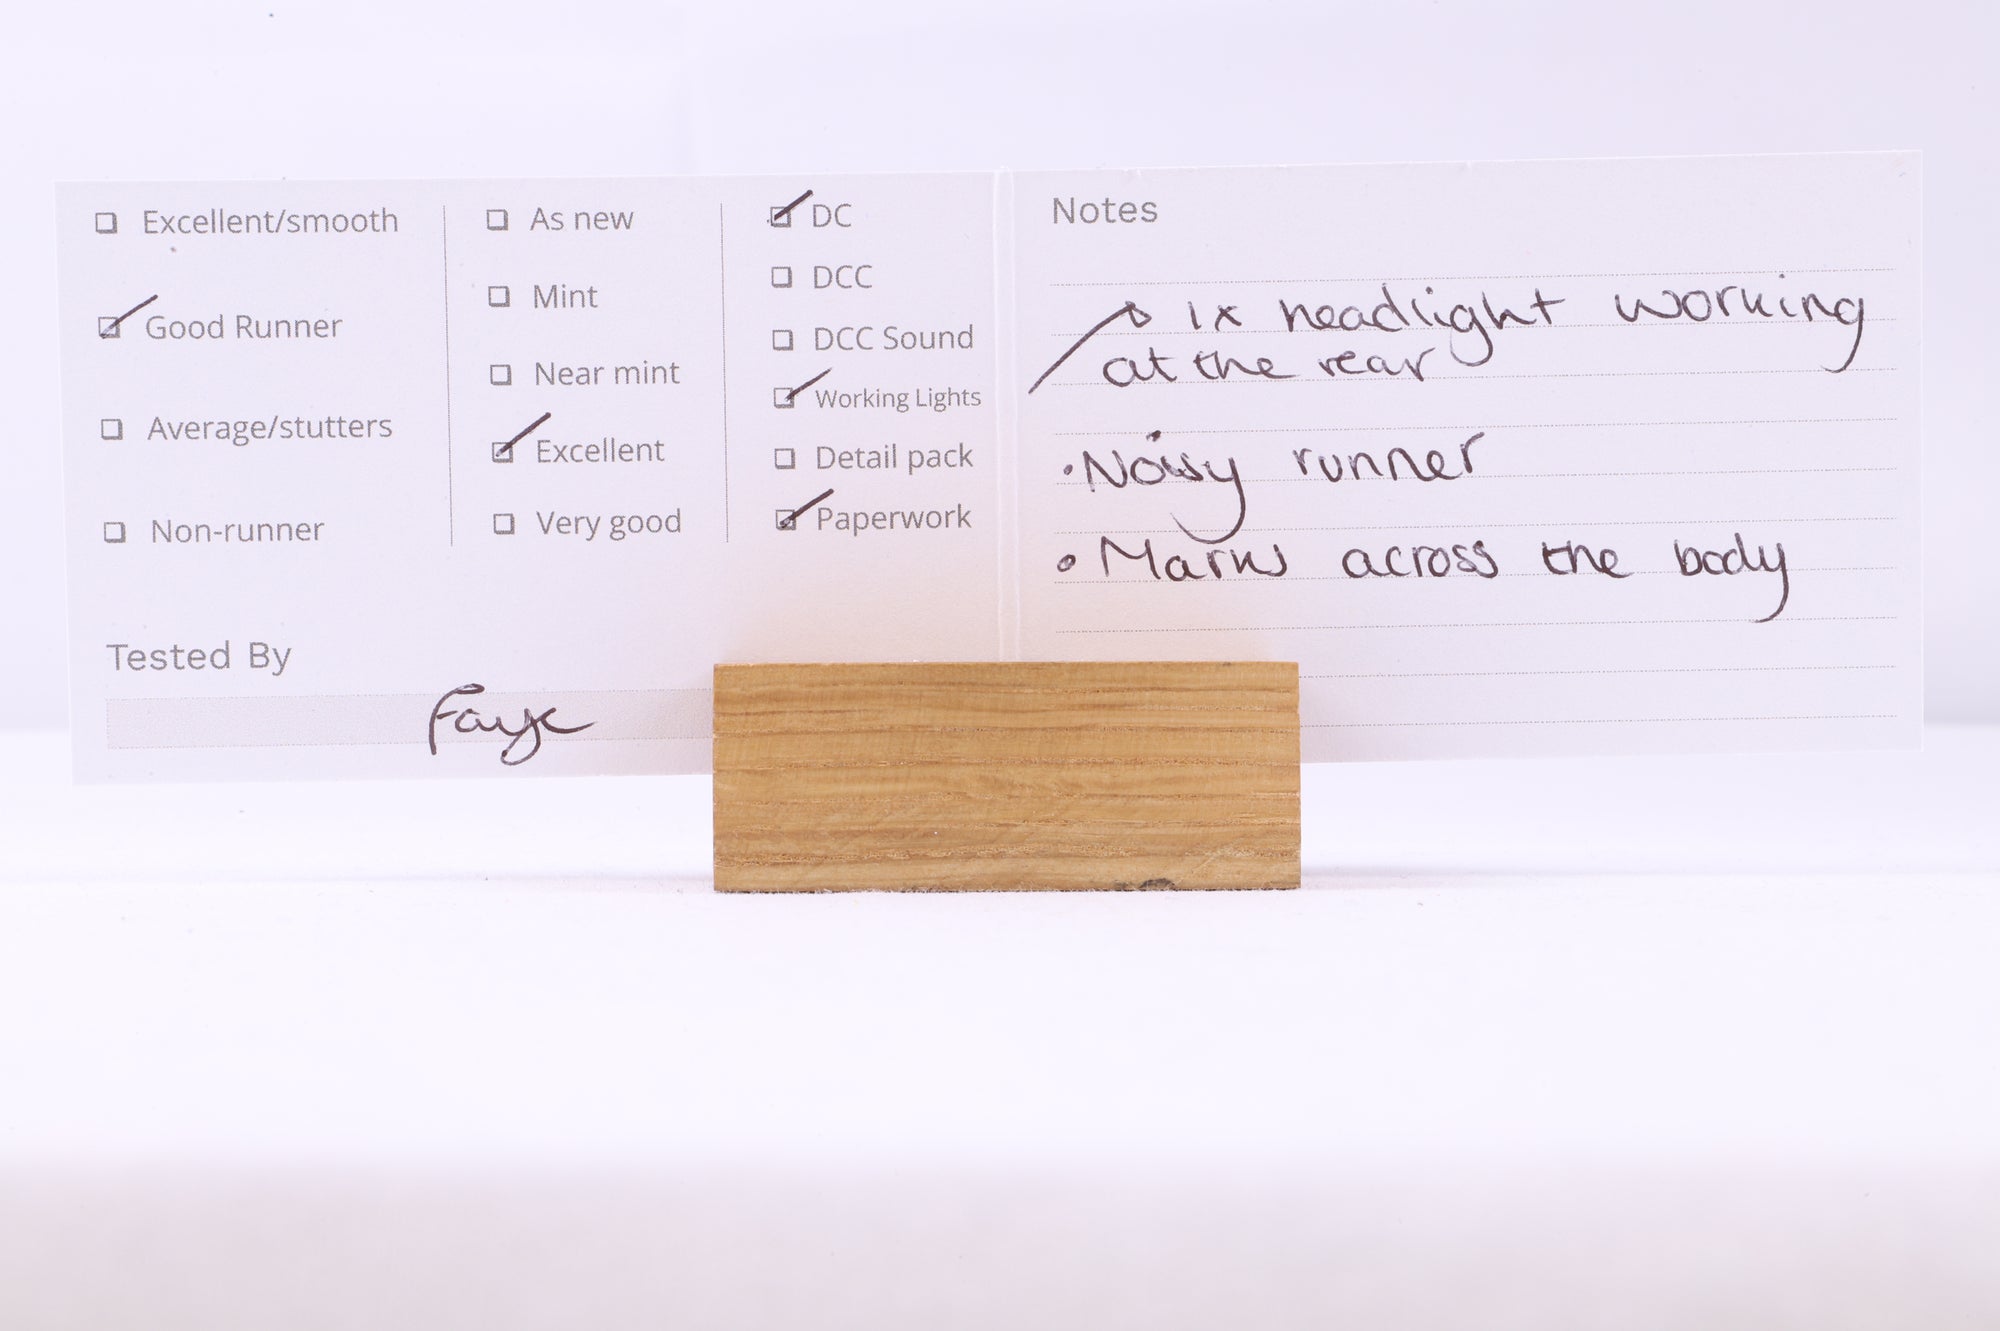 Excellent/smooth
Good Runner
Average/stutters
Non-runner
As new
Mint
Near mint
Excellent
Very good
DC
DCC
DCC Sound
Working Lights
Detail pack
Paperwork
Tested By
Faye
Notes
1x headlight working
at the rear
• Noisy runner
• Marks across the body